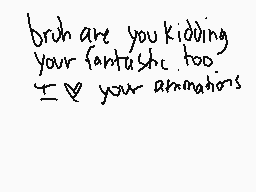 bruh are you kidding
your fantastic too
I ♥ your animations